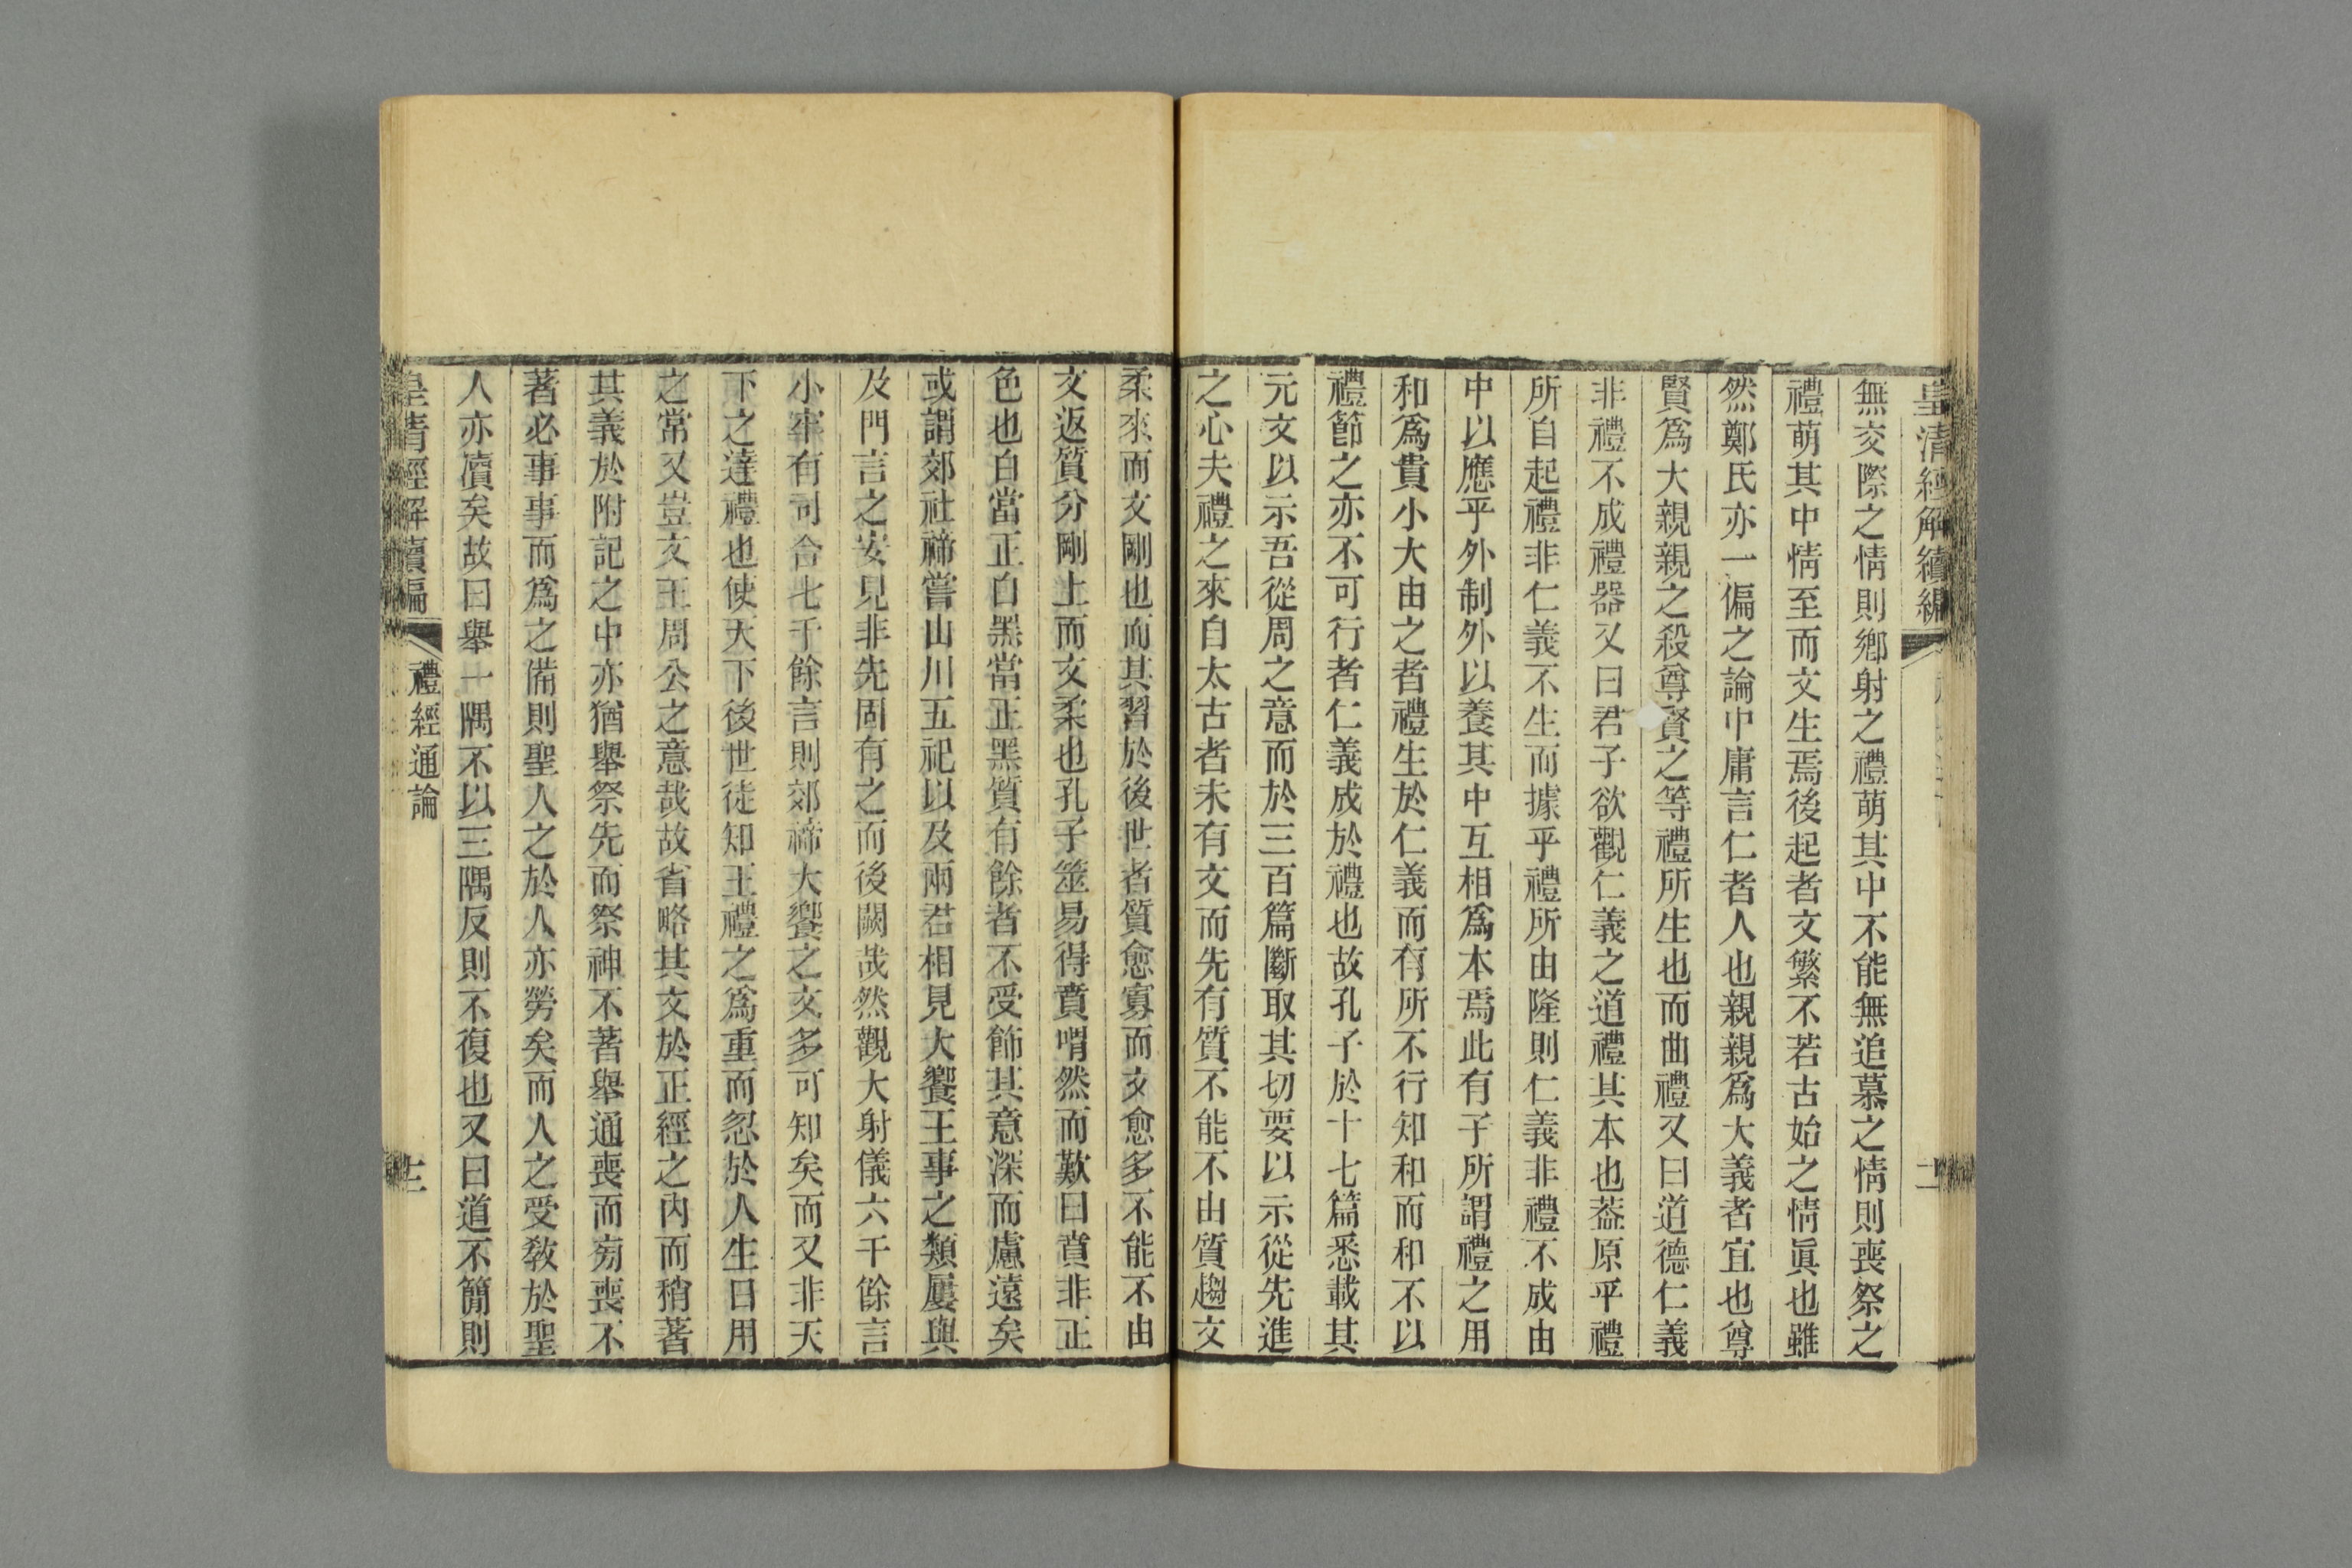 皇清經解續編
無交際之情則鄉射之禮萌其中不能無追慕之情則喪祭之
禮萌其中情至而文生焉後起者文繁不若古始之情眞也雖
然鄭氏亦一偏之論中庸言仁者人也親親爲大義者宜也尊
賢爲大親親之殺尊賢之等禮所生也而曲禮又曰道德仁義
非禮不成禮器又曰君子欲觀仁義之道禮其本也葢原乎禮
所自起禮非仁義不生而據乎禮所由隆則仁義非禮不成由
中以應乎外制外以養其中互相爲本焉此有子所謂禮之用
和爲貴小大由之者禮生於仁義而有所不行知和而和不以
禮節之亦不可行者仁義成於禮也故孔子於十七篇悉載其
元文以示吾從周之意而於三百篇斷取其切要以示從先進
之心夫禮之來自太古者未有文而先有質不能不由質趨文
柔來而文剛也而其習於後世者質愈寡而文愈多不能不由
文返質分剛上而文柔也孔子筮易得賁喟然而歎曰賁非正
色也白當正白黑當正黑質有餘者不受飾其意深而慮遠矣
或謂郊社禘嘗山川五祀以及兩君相見大饗王事之類屢與
及門言之安見非先固有之而後闕哉然觀大射儀六千餘言
小牢有司合七千餘言則郊禘大饗之文多可知矣而又非天
下之達禮也使天下後世徒知王禮之爲重而忽於人生日用
之常又豈文王周公之意哉故省略其文於正經之內而稍著
其義於附記之中亦猶舉祭先而祭神不著舉通喪而旁喪不
著必事事而爲之備則聖人之於人亦勞矣而人之受教於聖
人亦瀆矣故曰舉一隅不以三隅反則不復也又曰道不簡則
皇清經解續編
禮經通論